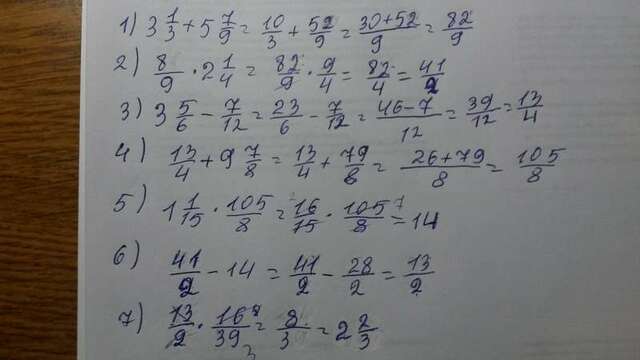 1) 3 1/3 + 5 7/9 = 10/3 + 52/9 = (30+52)/9 = 82/9
2) 8/9 · 2 1/4 = 82/9 · 9/4 = 82/4 = 41/2
3) 3 5/6 - 7/12 = 23/6 - 7/12 = (46-7)/12 = 39/12 = 13/4
4) 13/4 + 9 7/8 = 13/4 + 79/8 = (26+79)/8 = 105/8
5) 1 1/15 · 105/8 = 16/15 · 105/8 7 = 14
6) 41/2 - 14 = 41/2 - 28/2 = 13/2
7) 13/2 · 16/39 3 = 8/3 = 2 2/3